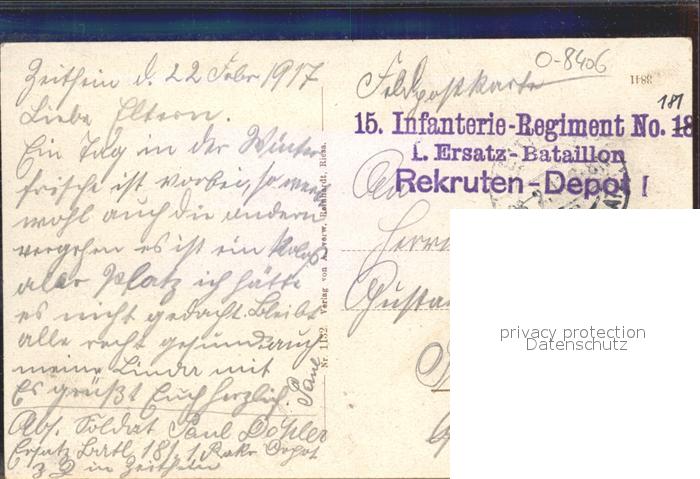 Zeithein d. 22 Febr 1917
Liebe Eltern.
Ein Tag in der Winter
frische ist vorbei, so wer
wohl auch die andern
vergehen es ist ein
aler Platz ich hätte
es nicht gedacht. Bleibt
alle recht gesund auch
meine Linda mit
Es grüßt Euch herzlich. Paul
Abs. Soldat Paul Döhler
Ersatz Batl. 181, 1 Rekr Depot
in Zeithein
Nr. 1132 Verlag von A. verw. Reinhardt, Riesa.
0-8406
1188
Feldpostkarte
181
15. Infanterie-Regiment No. 18
1. Ersatz-Bataillon
Rekruten-Depot I
An
Herrn
Gusta
privacy protection
Datenschutz